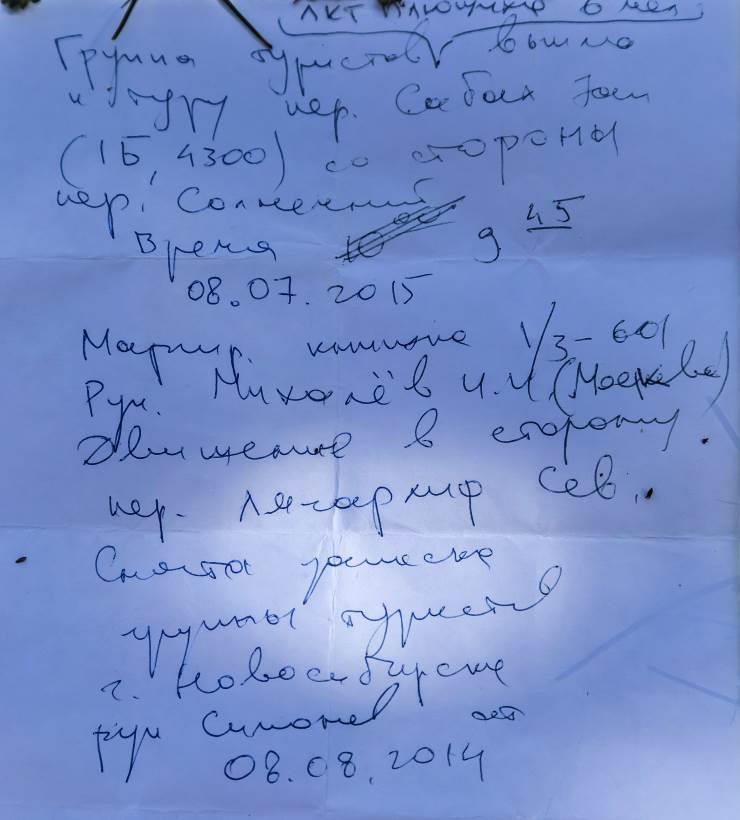 Группа туристов вышла
к туру пер.
(1Б, 4300) со стороны
пер. Солнечный
Время 10 00 9 45
08.07.2015
Маршр. книжка 1/3-601
Рук. Михалёв И.И. (Москва)
Движение в сторону
пер. Лячархиф Сев.
Снята записка
группы туристов
г. Новосибирска
рук Симонов от
08.08.2014